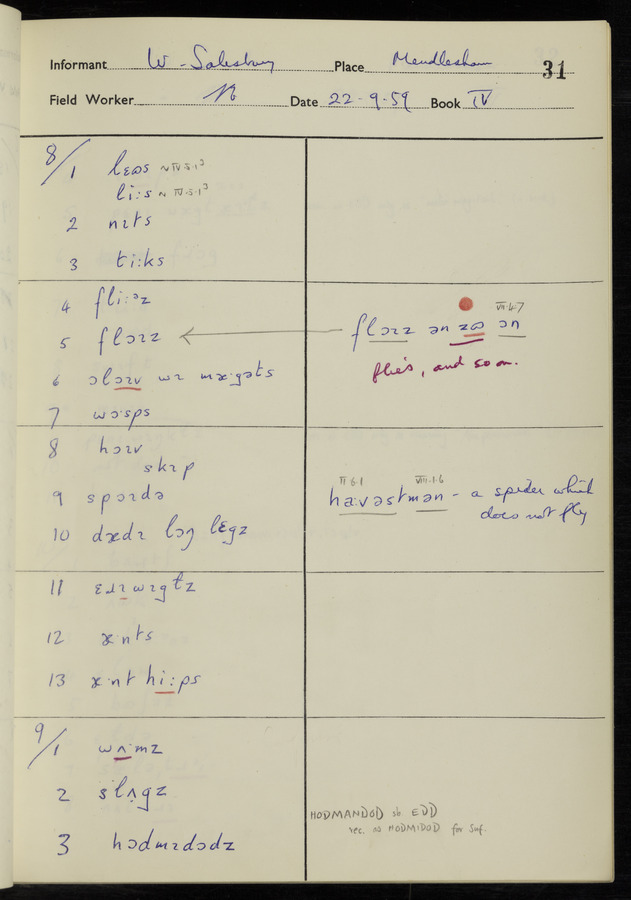 Informant W. Salesbury Place Mendlesham 31
Field Worker Date 22-9-59 Book IV
8/1 lɛɷs ~ IV·5·1³
li:s ~ IV·5·1³
2 nɪts
3 ti:ks
4 fli:ᵊz
VII·4·7
5 flɔɪz ← flɔɪz ən zɷ ɔn
flies, and so on.
6 ɔlɔɪv wɪ mæ·gəts
7 wɔ·sps
8 hɔɪv
skɪp
II 6·1 VIII·1·6
9 spɔɪdə ha:vəstmən - a spider which
does not fly
10 dædɪ lɔŋ lɛgz
11 ɛɹɪwɪgz
12 æ·nts
13 æ·nt hi:ps
9/1 wʌ·mz
2 slʌgz
HODMANDOD sb. EDD
rec. as HODMIDOD for Suf.
3 hɔdmɪdɔdz